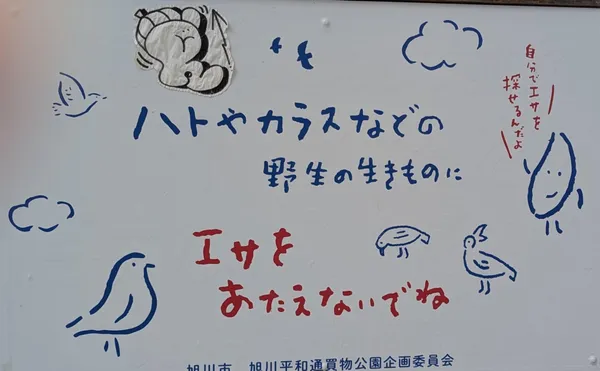 ハトやカラスなどの
野生の生きものに
エサを
あたえないでね
自分でエサを
探せるんだよ
旭川市 旭川平和通買物公園企画委員会